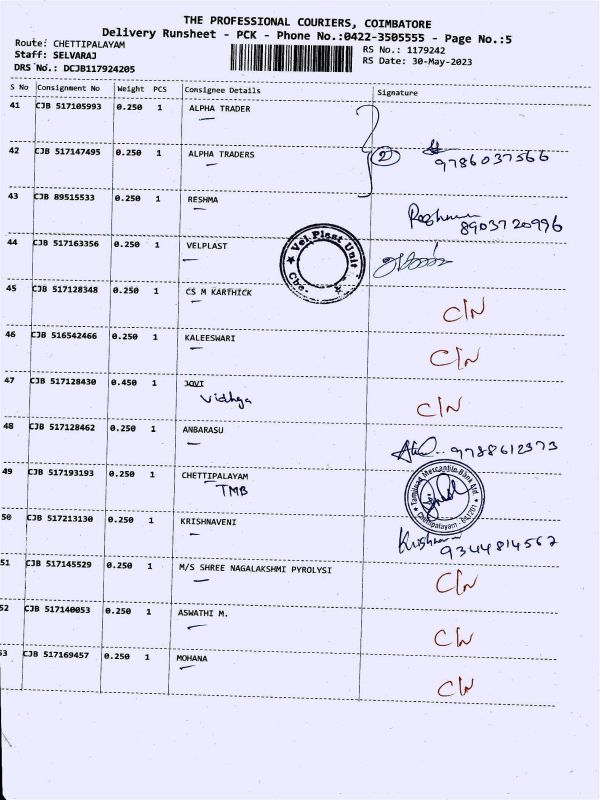 THE PROFESSIONAL COURIERS, COIMBATORE
Delivery Runsheet - PCK - Phone No.:0422-3505555 - Page No.:5
Route: CHETTIPALAYAM
RS No.: 1179242
Staff: SELVARAJ
RS Date: 30-May-2023
DRS No.: DCJB117924205
S No Consignment No Weight PCS Consignee Details Signature
41 CJB 517105993 0.250 1 ALPHA TRADER
42 CJB 517147495 0.250 1 ALPHA TRADERS 2 9786037566
43 CJB 89515533 0.250 1 RESHMA Reshma
8903720996
44 CJB 517163356 0.250 1 VELPLAST
★ Vel Plast Unit ★ Cbe.
45 CJB 517128348 0.250 1 CS M KARTHICK C/N
46 CJB 516542466 0.250 1 KALEESWARI C/N
47 CJB 517128430 0.450 1 JOVI C/N
Vidhya
48 CJB 517128462 0.250 1 ANBARASU 9788612373
49 CJB 517193193 0.250 1 CHETTIPALAYAM
TMB
★ Tamilnad Mercantile Bank Ltd. ★ Chettipalayam - 641201
50 CJB 517213130 0.250 1 KRISHNAVENI Krishna
9344814562
51 CJB 517145529 0.250 1 M/S SHREE NAGALAKSHMI PYROLYSI C/N
52 CJB 517140053 0.250 1 ASWATHI M. C/N
53 CJB 517169457 0.250 1 MOHANA C/N